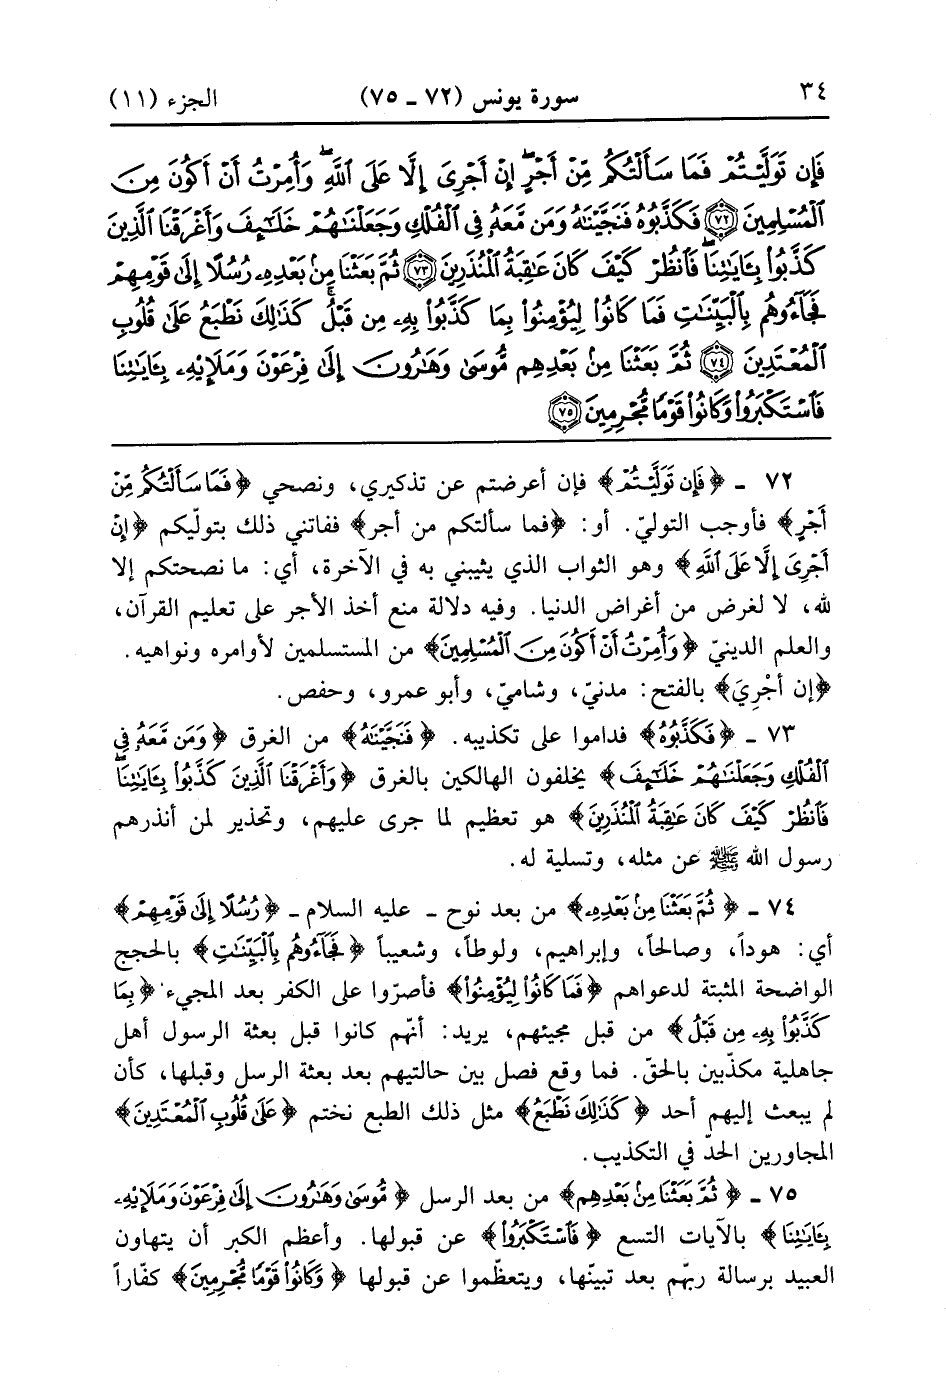 ٣٤ سورة يونس (٧٢ ـ ٧٥) الجزء (١١)
فَإِن تَوَلَّيْتُمْ فَمَا سَأَلْتُكُم مِّنْ أَجْرٍ ۖ إِنْ أَجْرِىَ إِلَّا عَلَى ٱللَّهِ ۖ وَأُمِرْتُ أَنْ أَكُونَ مِنَ
ٱلْمُسْلِمِينَ ﴿٧٢﴾ فَكَذَّبُوهُ فَنَجَّيْنَٰهُ وَمَن مَّعَهُۥ فِى ٱلْفُلْكِ وَجَعَلْنَٰهُمْ خَلَٰٓئِفَ وَأَغْرَقْنَا ٱلَّذِينَ
كَذَّبُوا۟ بِـَٔايَٰتِنَا ۖ فَٱنظُرْ كَيْفَ كَانَ عَٰقِبَةُ ٱلْمُنذَرِينَ ﴿٧٣﴾ ثُمَّ بَعَثْنَا مِنۢ بَعْدِهِۦ رُسُلًا إِلَىٰ قَوْمِهِمْ
فَجَآءُوهُم بِٱلْبَيِّنَٰتِ فَمَا كَانُوا۟ لِيُؤْمِنُوا۟ بِمَا كَذَّبُوا۟ بِهِۦ مِن قَبْلُ ۚ كَذَٰلِكَ نَطْبَعُ عَلَىٰ قُلُوبِ
ٱلْمُعْتَدِينَ ﴿٧٤﴾ ثُمَّ بَعَثْنَا مِنۢ بَعْدِهِم مُّوسَىٰ وَهَٰرُونَ إِلَىٰ فِرْعَوْنَ وَمَلَإِيْهِۦ بِـَٔايَٰتِنَا
فَٱسْتَكْبَرُوا۟ وَكَانُوا۟ قَوْمًا مُّجْرِمِينَ ﴿٧٥﴾
٧٢ ـ ﴿فَإِن تَوَلَّيْتُمْ﴾ فإن أعرضتم عن تذكيري، ونصحي ﴿فَمَا سَأَلْتُكُم مِّنْ
أَجْرٍ﴾ فأوجب التوليّ. أو: ﴿فما سألتكم من أجر﴾ ففاتني ذلك بتولّيكم ﴿إِنْ
أَجْرِىَ إِلَّا عَلَى ٱللَّهِ﴾ وهو الثواب الذي يثيبني به في الآخرة، أي: ما نصحتكم إلا
لله، لا لغرض من أغراض الدنيا. وفيه دلالة منع أخذ الأجر على تعليم القرآن،
والعلم الدينيّ ﴿وَأُمِرْتُ أَنْ أَكُونَ مِنَ ٱلْمُسْلِمِينَ﴾ من المستسلمين لأوامره ونواهيه.
﴿إن أجْرِيَ﴾ بالفتح: مدنيّ، وشاميّ، وأبو عمرو، وحفص.
٧٣ ـ ﴿فَكَذَّبُوهُ﴾ فداموا على تكذيبه. ﴿فَنَجَّيْنَٰهُ﴾ من الغرق ﴿وَمَن مَّعَهُۥ فِى
ٱلْفُلْكِ وَجَعَلْنَٰهُمْ خَلَٰٓئِفَ﴾ يخلفون الهالكين بالغرق ﴿وَأَغْرَقْنَا ٱلَّذِينَ كَذَّبُوا۟ بِـَٔايَٰتِنَا ۖ
فَٱنظُرْ كَيْفَ كَانَ عَٰقِبَةُ ٱلْمُنذَرِينَ﴾ هو تعظيم لما جرى عليهم، وتحذير لمن أنذرهم
رسول الله ﷺ عن مثله، وتسلية له.
٧٤ ـ ﴿ثُمَّ بَعَثْنَا مِنۢ بَعْدِهِۦ﴾ من بعد نوح ـ عليه السلام ـ ﴿رُسُلًا إِلَىٰ قَوْمِهِمْ﴾
أي: هوداً، وصالحاً، وإبراهيم، ولوطاً، وشعيباً ﴿فَجَآءُوهُم بِٱلْبَيِّنَٰتِ﴾ بالحجج
الواضحة المثبتة لدعواهم ﴿فَمَا كَانُوا۟ لِيُؤْمِنُوا۟﴾ فأصرّوا على الكفر بعد المجيء ﴿بِمَا
كَذَّبُوا۟ بِهِۦ مِن قَبْلُ﴾ من قبل مجيئهم، يريد: أنّهم كانوا قبل بعثة الرسول أهل
جاهلية مكذّبين بالحقّ. فما وقع فصل بين حالتيهم بعد بعثة الرسل وقبلها، كأن
لم يبعث إليهم أحد ﴿كَذَٰلِكَ نَطْبَعُ﴾ مثل ذلك الطبع نختم ﴿عَلَىٰ قُلُوبِ ٱلْمُعْتَدِينَ﴾
المجاورين الحدّ في التكذيب.
٧٥ ـ ﴿ثُمَّ بَعَثْنَا مِنۢ بَعْدِهِم﴾ من بعد الرسل ﴿مُّوسَىٰ وَهَٰرُونَ إِلَىٰ فِرْعَوْنَ وَمَلَإِيْهِۦ
بِـَٔايَٰتِنَا﴾ بالآيات التسع ﴿فَٱسْتَكْبَرُوا۟﴾ عن قبولها. وأعظم الكبر أن يتهاون
العبيد برسالة ربّهم بعد تبيّنها، ويتعظّموا عن قبولها ﴿وَكَانُوا۟ قَوْمًا مُّجْرِمِينَ﴾ كفّاراً